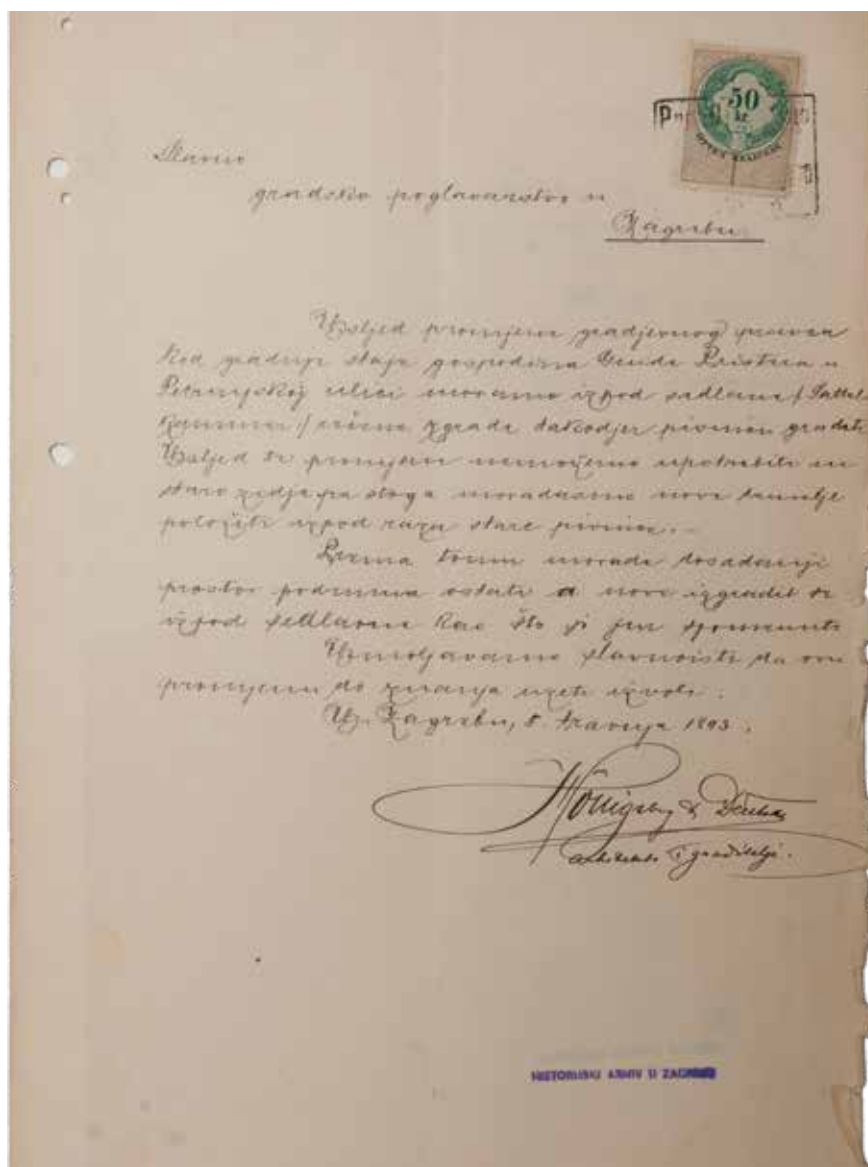 50
kr
Slavno
gradsko poglavarstvo u
Zagrebu
Uslјed promjene gradjevnog pravca
kod gradnje staja gospodina Gvida Pristera u
Petrinjskoj ulici moramo izpod sedlarne /Sattel
kammer/ zgrade takodjer pivnicu graditi
Uslјed te promjene nemožemo upotrebiti
staro zidje pa stoga moradosmo nove temelje
položiti izpod stare pivnice.
Prema tomu morade dosadanji
prostor podruma ostati a novi izgradit se
izpod sedlarne kao što je jur spomenuto
Umoljavamo slavnoisti da ovu
promjenu do znanja uzeti izvoli.
U Zagrebu, 8. travnja 1893.
Hönigsberg & Deutsch
arhitekti i graditelji.
HISTORIJSKI ARHIV U ZAGREBU